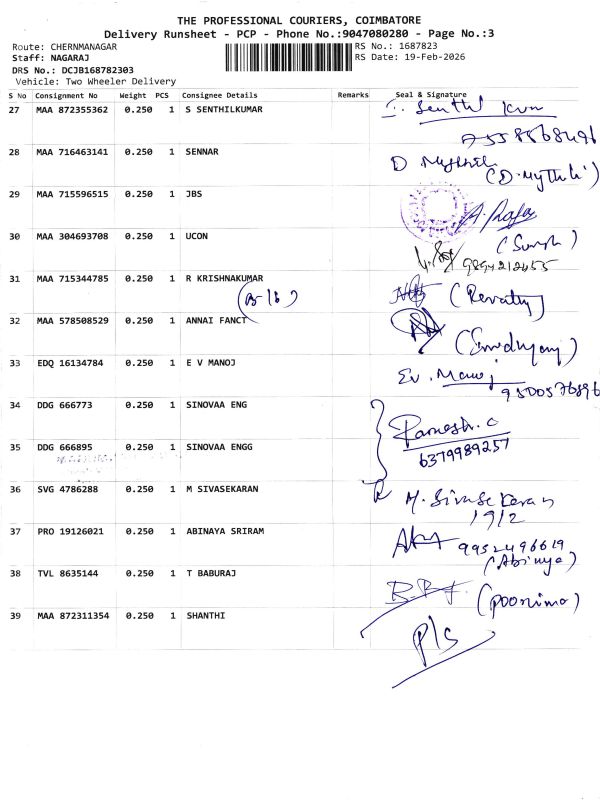 THE PROFESSIONAL COURIERS, COIMBATORE
Delivery Runsheet - PCP - Phone No.:9047080280 - Page No.:3
Route: CHERNMANAGAR
RS No.: 1687823
Staff: NAGARAJ
RS Date: 19-Feb-2026
DRS No.: DCJB168782303
Vehicle: Two Wheeler Delivery
S No Consignment No Weight PCS Consignee Details Remarks Seal & Signature
27 MAA 872355362 0.250 1 S SENTHILKUMAR
28 MAA 716463141 0.250 1 SENNAR
D
(D. Mythili)
29 MAA 715596515 0.250 1 JBS
30 MAA 304693708 0.250 1 UCON
9894212455
31 MAA 715344785 0.250 1 R KRISHNAKUMAR
(Revathy)
32 MAA 578508529 0.250 1 ANNAI FANCT
33 EDQ 16134784 0.250 1 E V MANOJ
Ev. Manoj
9500576896
34 DDG 666773 0.250 1 SINOVAA ENG
Ramesh. C
6379989257
35 DDG 666895 0.250 1 SINOVAA ENGG
36 SVG 4786288 0.250 1 M SIVASEKARAN
M. Sivasekaran
1912
37 PRO 19126021 0.250 1 ABINAYA SRIRAM
9952496619
(Abinya)
38 TVL 8635144 0.250 1 T BABURAJ
(Poonima)
39 MAA 872311354 0.250 1 SHANTHI
P/S